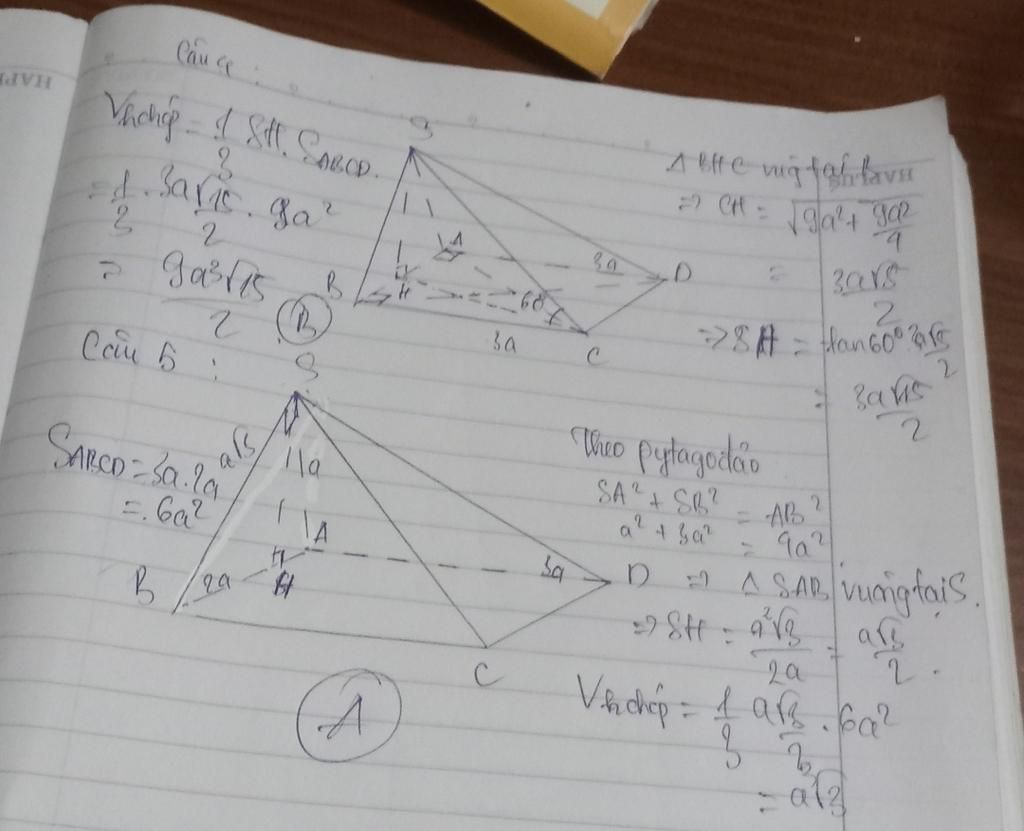 Câu 4 :
Vkhchóp = 1/3 SH. SABCD.
= 1/3 . 3a√15/2 . 9a²
= 9a³√15/2
B
S
A
B
H
60°
3a
D
3a
C
Δ BHC vuông tại B
=> CH = √9a² + 9a²/4
= 3a√5/2
=> SH = tan60°. 3a√5/2
= 3a√15/2
HAPPI
Câu 5 :
SABCD = 3a.2a
= .6a²
S
a√3
a
A
B
2a
H
3a
D
C
A
Theo pytago đảo
SA² + SB² = AB²
a² + 3a² = 4a²
=> Δ SAB vuông tại S.
=> SH = a²√3/2a = a√3/2 .
Vkhchóp = 1/3 a√3/2 . 6a²
= a√3